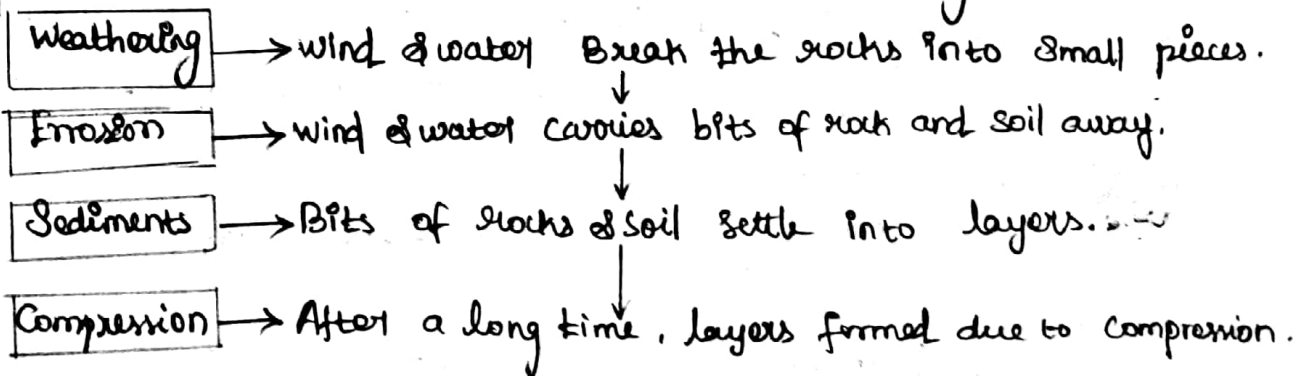 Weathering → Wind & water Break the rocks into small pieces.
Errosion → Wind & water carries bits of rock and soil away.
Sediments → Bits of rocks & soil settle into layers.
Compression → After a long time, layers formed due to compression.